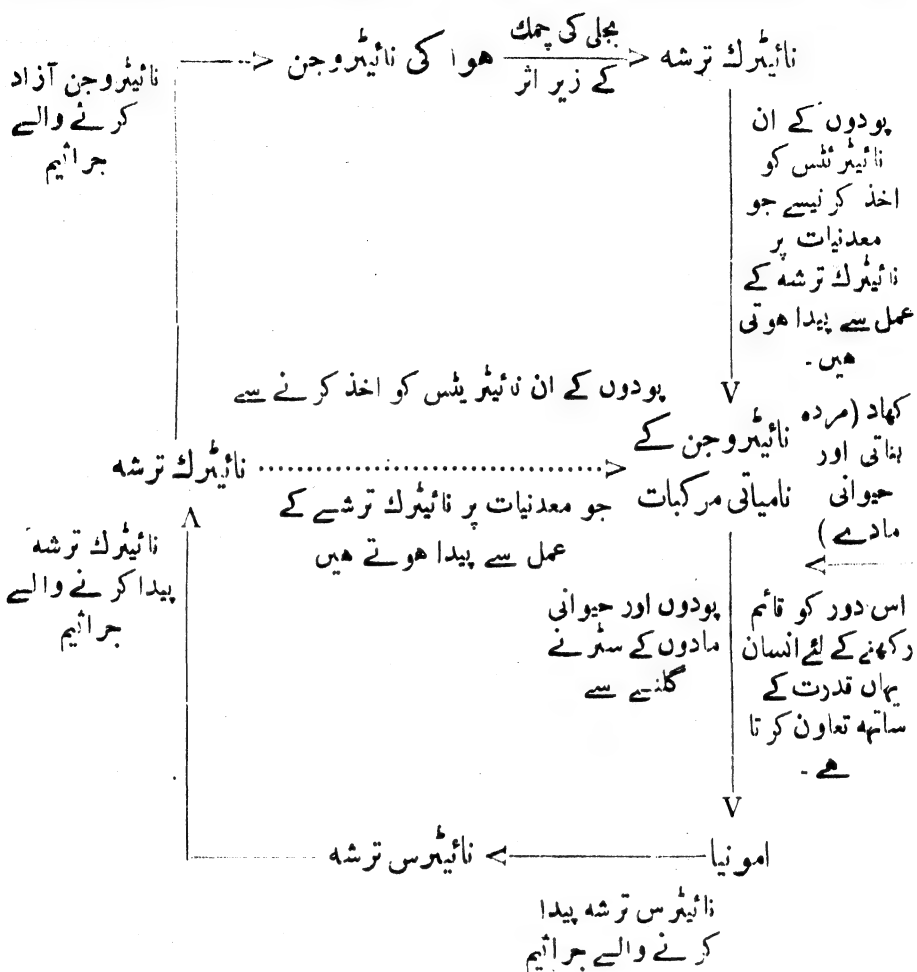 نائیٹرک ترشہ
بجلی کی چمک
کے زیر اثر
ہوا کی نائیٹروجن
نائیٹروجن آزاد
کرنے والے
جراثیم
پودوں کے ان
نائیٹرئٹس کو
اخذ کرنیسے جو
معدنیات پر
نائیٹرک ترشہ کے
عمل سے پیدا ہوتی
ہیں۔
پودوں کے ان نائیٹریٹس کو اخذ کرنے سے
نائیٹروجن کے
نامیاتی مرکبات
نائیٹرک ترشہ
جو معدنیات پر نائیٹرک ترشے کے
عمل سے پیدا ہوتے ہیں
کھاد (مردہ
بناتی اور
حیوانی
مادے)
نائیٹرک ترشہ
پیدا کرنے والے
جراثیم
پودوں اور حیوانی
مادوں کے سڑنے
گلنے سے
اس دور کو قائم
رکھنے کے لئے انسان
یہاں قدرت کے
ساتھ تعاون کرتا
ہے۔
امونیا
نائیٹرس ترشہ
نائیٹرس ترشہ پیدا
کرنے والے جراثیم